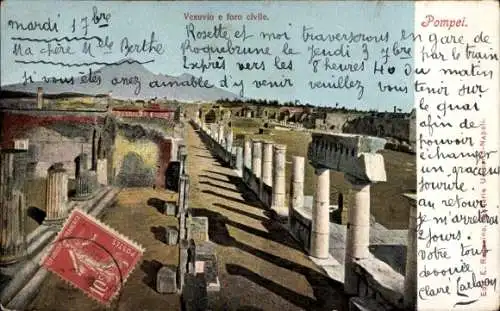 Vesuvio e foro civile.
Pompei.
mardi 1 7bre
Ma chère Mlle Berthe
Rosette et moi traverserons en gare de
Roquebrune le Jeudi 3 7bre par le train
Exprès vers les 8 heures 40 du matin
si vous êtes assez aimable d'y venir veuillez vous tenir
sur le
quai
afin de
pouvoir
échanger
un gracieux
sourire.
Au retour
je m'arrêterai
2 jours.
Votre tou
dévouée
Claire
POSTES
10
Napoli